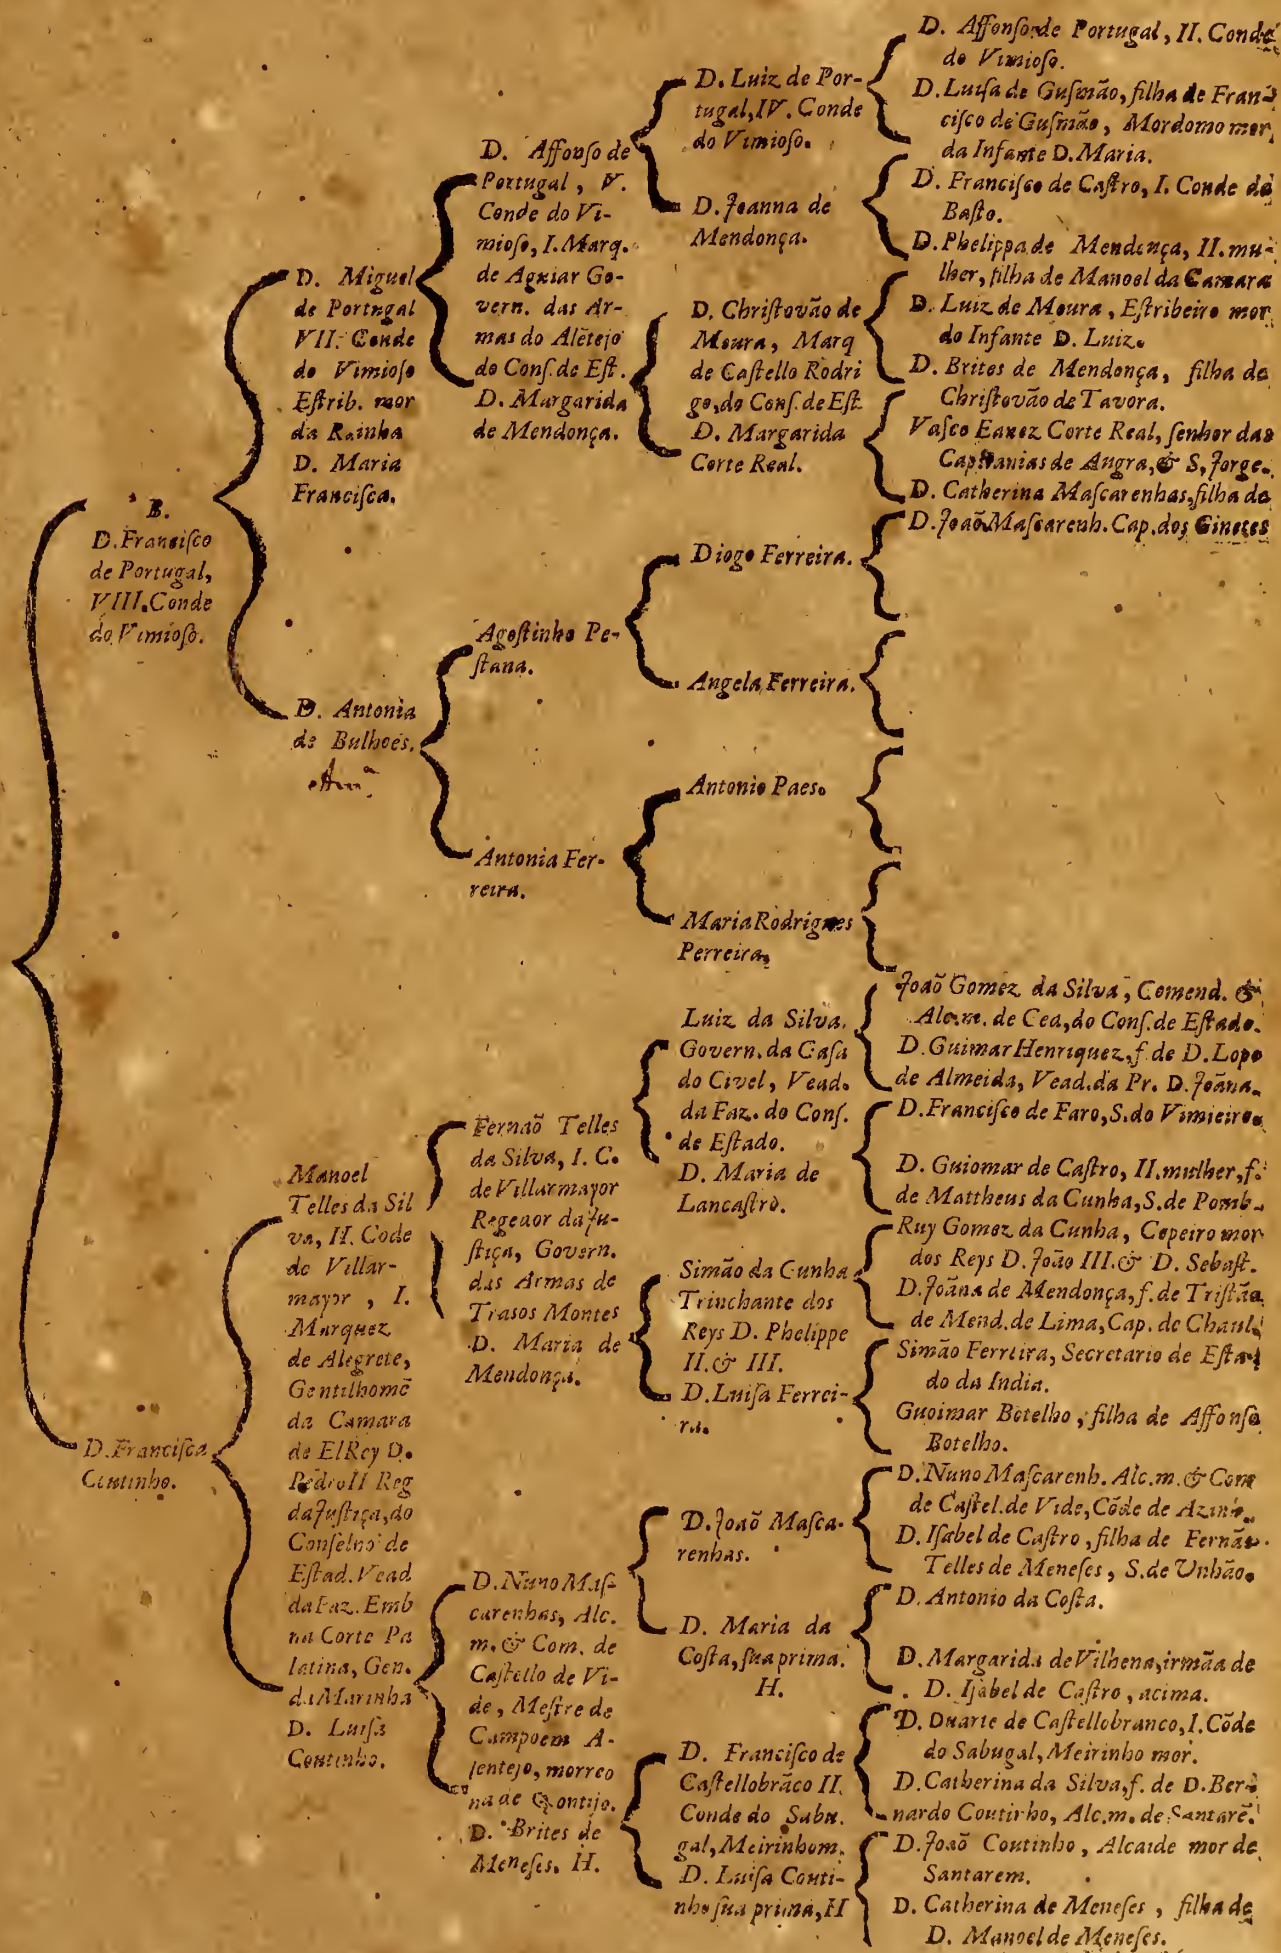 B.
D. Franciſco
de Portugal,
VIII. Conde
do Vimioſo.
D. Franciſca
Coutinho.
D. Miguel
de Portugal
VII. Conde
do Vimioſo
Eſtrib. mor
da Rainha
D. Maria
Franciſca.
D. Antonia
de Bulhoẽs.
Manoel
Telles da Sil
va, II. Cõde
de Villar-
mayor, I.
Marquez
de Alegrete,
Gentilhomẽ
da Camara
de ElRey D.
Pedro II Reg
da Juſtiça, do
Conſelho de
Eſtad. Vead
da Faz. Emb
na Corte Pa
latina, Gen.
da Marinha
D. Luiſa
Coutinho.
D. Affonſo de
Portugal, V.
Conde do Vi-
mioſo, I. Marq.
de Aguiar Go-
vern. das Ar-
mas do Alẽtejo
do Conſ. de Eſt.
D. Margarida
de Mendonça.
Agoſtinho Pe-
ſtana.
Antonia Fer-
reira.
Fernaõ Telles
da Silva, I. C.
de Villarmayor
Regedor da Ju-
ſtiça, Govern.
das Armas de
Trasos Montes
D. Maria de
Mendonça.
D. Nuno Maſ-
carenhas, Alc.
m. & Com. de
Caſtello de Vi-
de, Meſtre de
Campo em A-
lentejo, morreo
na de Montijo.
D. Brites de
Meneſes. H.
D. Luiz de Por-
tugal, IV. Conde
do Vimioſo.
D. Joanna de
Mendonça.
D. Chriſtovão de
Moura, Marq
de Caſtello Rodri
go, do Conſ. de Eſt.
D. Margarida
Corte Real.
Diogo Ferreira.
Angela Ferreira.
Antonio Paes.
Maria Rodrigues
Perreira.
Luiz da Silva.
Govern. da Caſa
do Civel, Vead.
da Faz. do Conſ.
de Eſtado.
D. Maria de
Lancaſtro.
Simão da Cunha
Trinchante dos
Reys D. Phelippe
II. & III.
D. Luiſa Ferrei-
ra.
D. Joaõ Maſca-
renhas.
D. Maria da
Coſta, ſua prima.
H.
D. Franciſco de
Caſtellobrãco II.
Conde do Sabu.
gal, Meirinhom.
D. Luiſa Couti-
nho ſua prima, H
D. Affonſo de Portugal, II. Conde
do Vimioſo.
D. Luiſa de Guſmão, filha de Fran-
ciſco de Guſmão, Mordomo mor
da Infante D. Maria.
D. Franciſco de Caſtro, I. Conde de
Baſto.
D. Phelippa de Mendença, II. mu-
lher, filha de Manoel da Camara
D. Luiz de Moura, Eſtribeiro mor
do Infante D. Luiz.
D. Brites de Mendonça, filha de
Chriſtovão de Tavora.
Vaſco Eanez Corte Real, ſenhor das
Capitanias de Angra, & S, Jorge.
D. Catherina Maſcarenhas, filha de
D. Joaõ Maſcarenh. Cap. dos Ginetes
Joaõ Gomez da Silva, Comend. &
Alc. m. de Cea, do Conſ. de Eſtado.
D. Guimar Henriquez, f. de D. Lopo
de Almeida, Vead. da Pr. D. Joãna.
D. Franciſco de Faro, S. do Vimieiro.
D. Guiomar de Caſtro, II. mulher, f.
de Mattheus da Cunha, S. de Pomb.
Ruy Gomez da Cunha, Copeiro mor
dos Reys D. João III. & D. Sebaſt.
D. Joãna de Mendonça, f. de Triſtão
de Mend. de Lima, Cap. de Chaul.
Simão Ferreira, Secretario de Eſta
do da India.
Guoimar Botelho, filha de Affonſo
Botelho.
D. Nuno Maſcarenh. Alc. m. & Com
de Caſtel. de Vide, Cõde de Azinh.
D. Iſabel de Caſtro, filha de Fernão
Telles de Meneſes, S. de Unhão.
D. Antonio da Coſta.
D. Margarida de Vilhena, irmãa de
D. Iſabel de Caſtro, acima.
D. Duarte de Caſtellobranco, I. Cõde
do Sabugal, Meirinho mor.
D. Catherina da Silva, f. de D. Ber-
nardo Coutinho, Alc. m. de Santarẽ.
D. Joaõ Coutinho, Alcaide mor de
Santarem.
D. Catherina de Meneſes, filha de
D. Manoel de Meneſes.